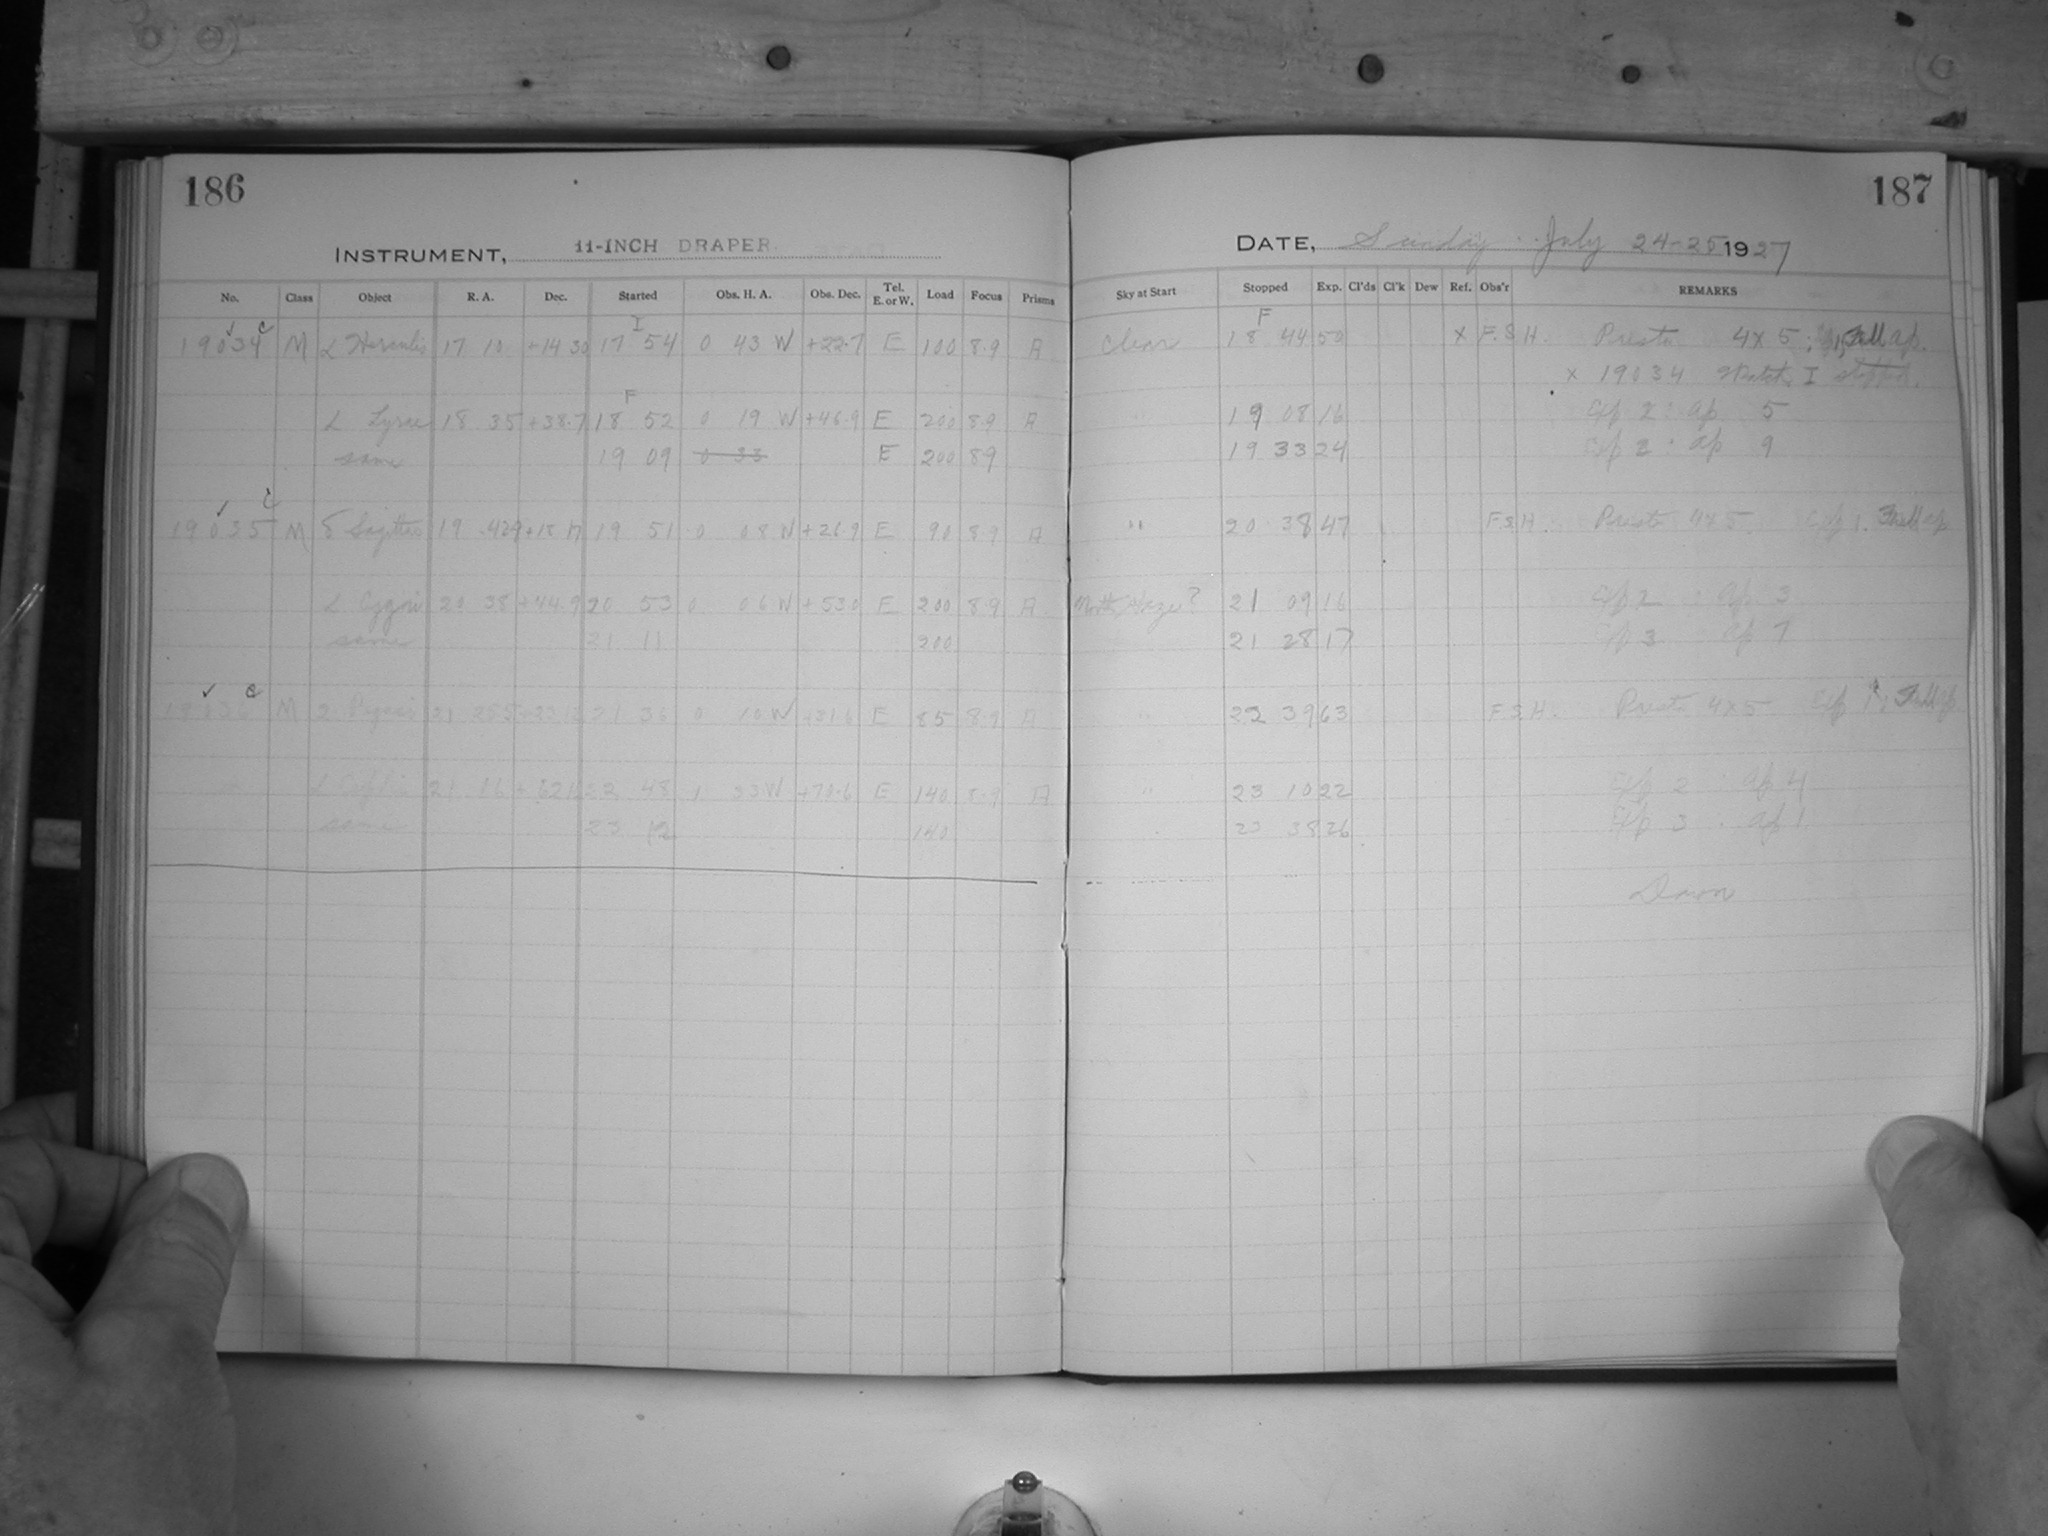 186
INSTRUMENT, 11-INCH DRAPER.
No. Class Object R. A. Dec. Started Obs. H. A. Obs. Dec. Tel. E. or W. Load Focus Prisms
I
19034 M α Herculis 17 10 +14 30 17 54 0 43 W +22.7 E 100 8.9 A
F
α Lyrae 18 35 +38.7 18 52 0 19 W +46.9 E 200 8.9 A
same 19 09 0 33 E 200 8.9
19035 M δ Sagittae 19 42.9 19 51 0 08 W +26.9 E 90 8.9 A
α Cygni 20 38 +44.9 20 53 0 06 W +53.0 E 200 8.9 A
same 21 11 200
M 2 Pegasi 21 25.5 21 36 0 10 W +31.6 E 85 8.9 A
21 16 22 48 1 33 W +70.6 E 140 8.9 A
same 23 12 140
187
DATE, Sunday July 24-25 1927
Sky at Start Stopped Exp. Cl'ds Cl'k Dew Ref. Obs'r REMARKS
F
Clear 18 44 50 x F.S.H. Presto 4x5; Full ap.
x 19034 I
" 19 08 16 2 ap 5
19 33 24 2 ap 9
" 20 38 47 F.S.H. Presto 4x5 1. Full ap
North Haze? 21 09 16 2 ap 3
21 28 17 3 ap 7
" 22 39 63 F.S.H. Presto 4x5 1, Full ap
" 23 10 22 2 ap 4
23 38 26 3 ap 1
Dawn